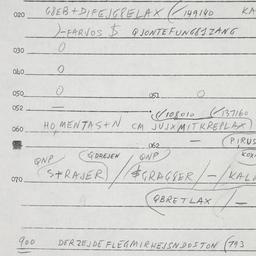 020 GØEB+DIFEJGPELAX (✓149140 KA
)-FARVOS $ QJONTEFUNGG1ZANG
030 0
040 0
050 0 051 0
052 — (✓108010 ✓137160
HOMENTAS+N CM JUJXMITKREPLAX)
060 062 — (PIRUS
QNP (QDREJEN QNP KOX
070 S+RAJER / $GRAGGER / — / KAL
QBRETLAX / —
900 DERZEJDEFLEGMIRHEJSNDOSTON (793